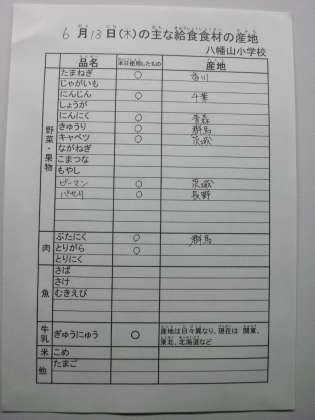 6月13日(木)の主な給食食材の産地
八幡山小学校
品名 本日使用したもの 産地
野菜・果物
たまねぎ ○ 香川
じゃがいも
にんじん ○ 千葉
しょうが
にんにく ○ 青森
きゅうり ○ 群馬
キャベツ ○ 茨城
ながねぎ
こまつな
もやし
ピーマン ○ 茨城
パセリ ○ 長野
肉
ぶたにく ○ 群馬
とりがら ○
とりにく
魚
さば
さけ
むきえび
牛乳 ぎゅうにゅう ○ 産地は日々異なり、現在は 関東、
東北、北海道など
米 こめ
他 たまご